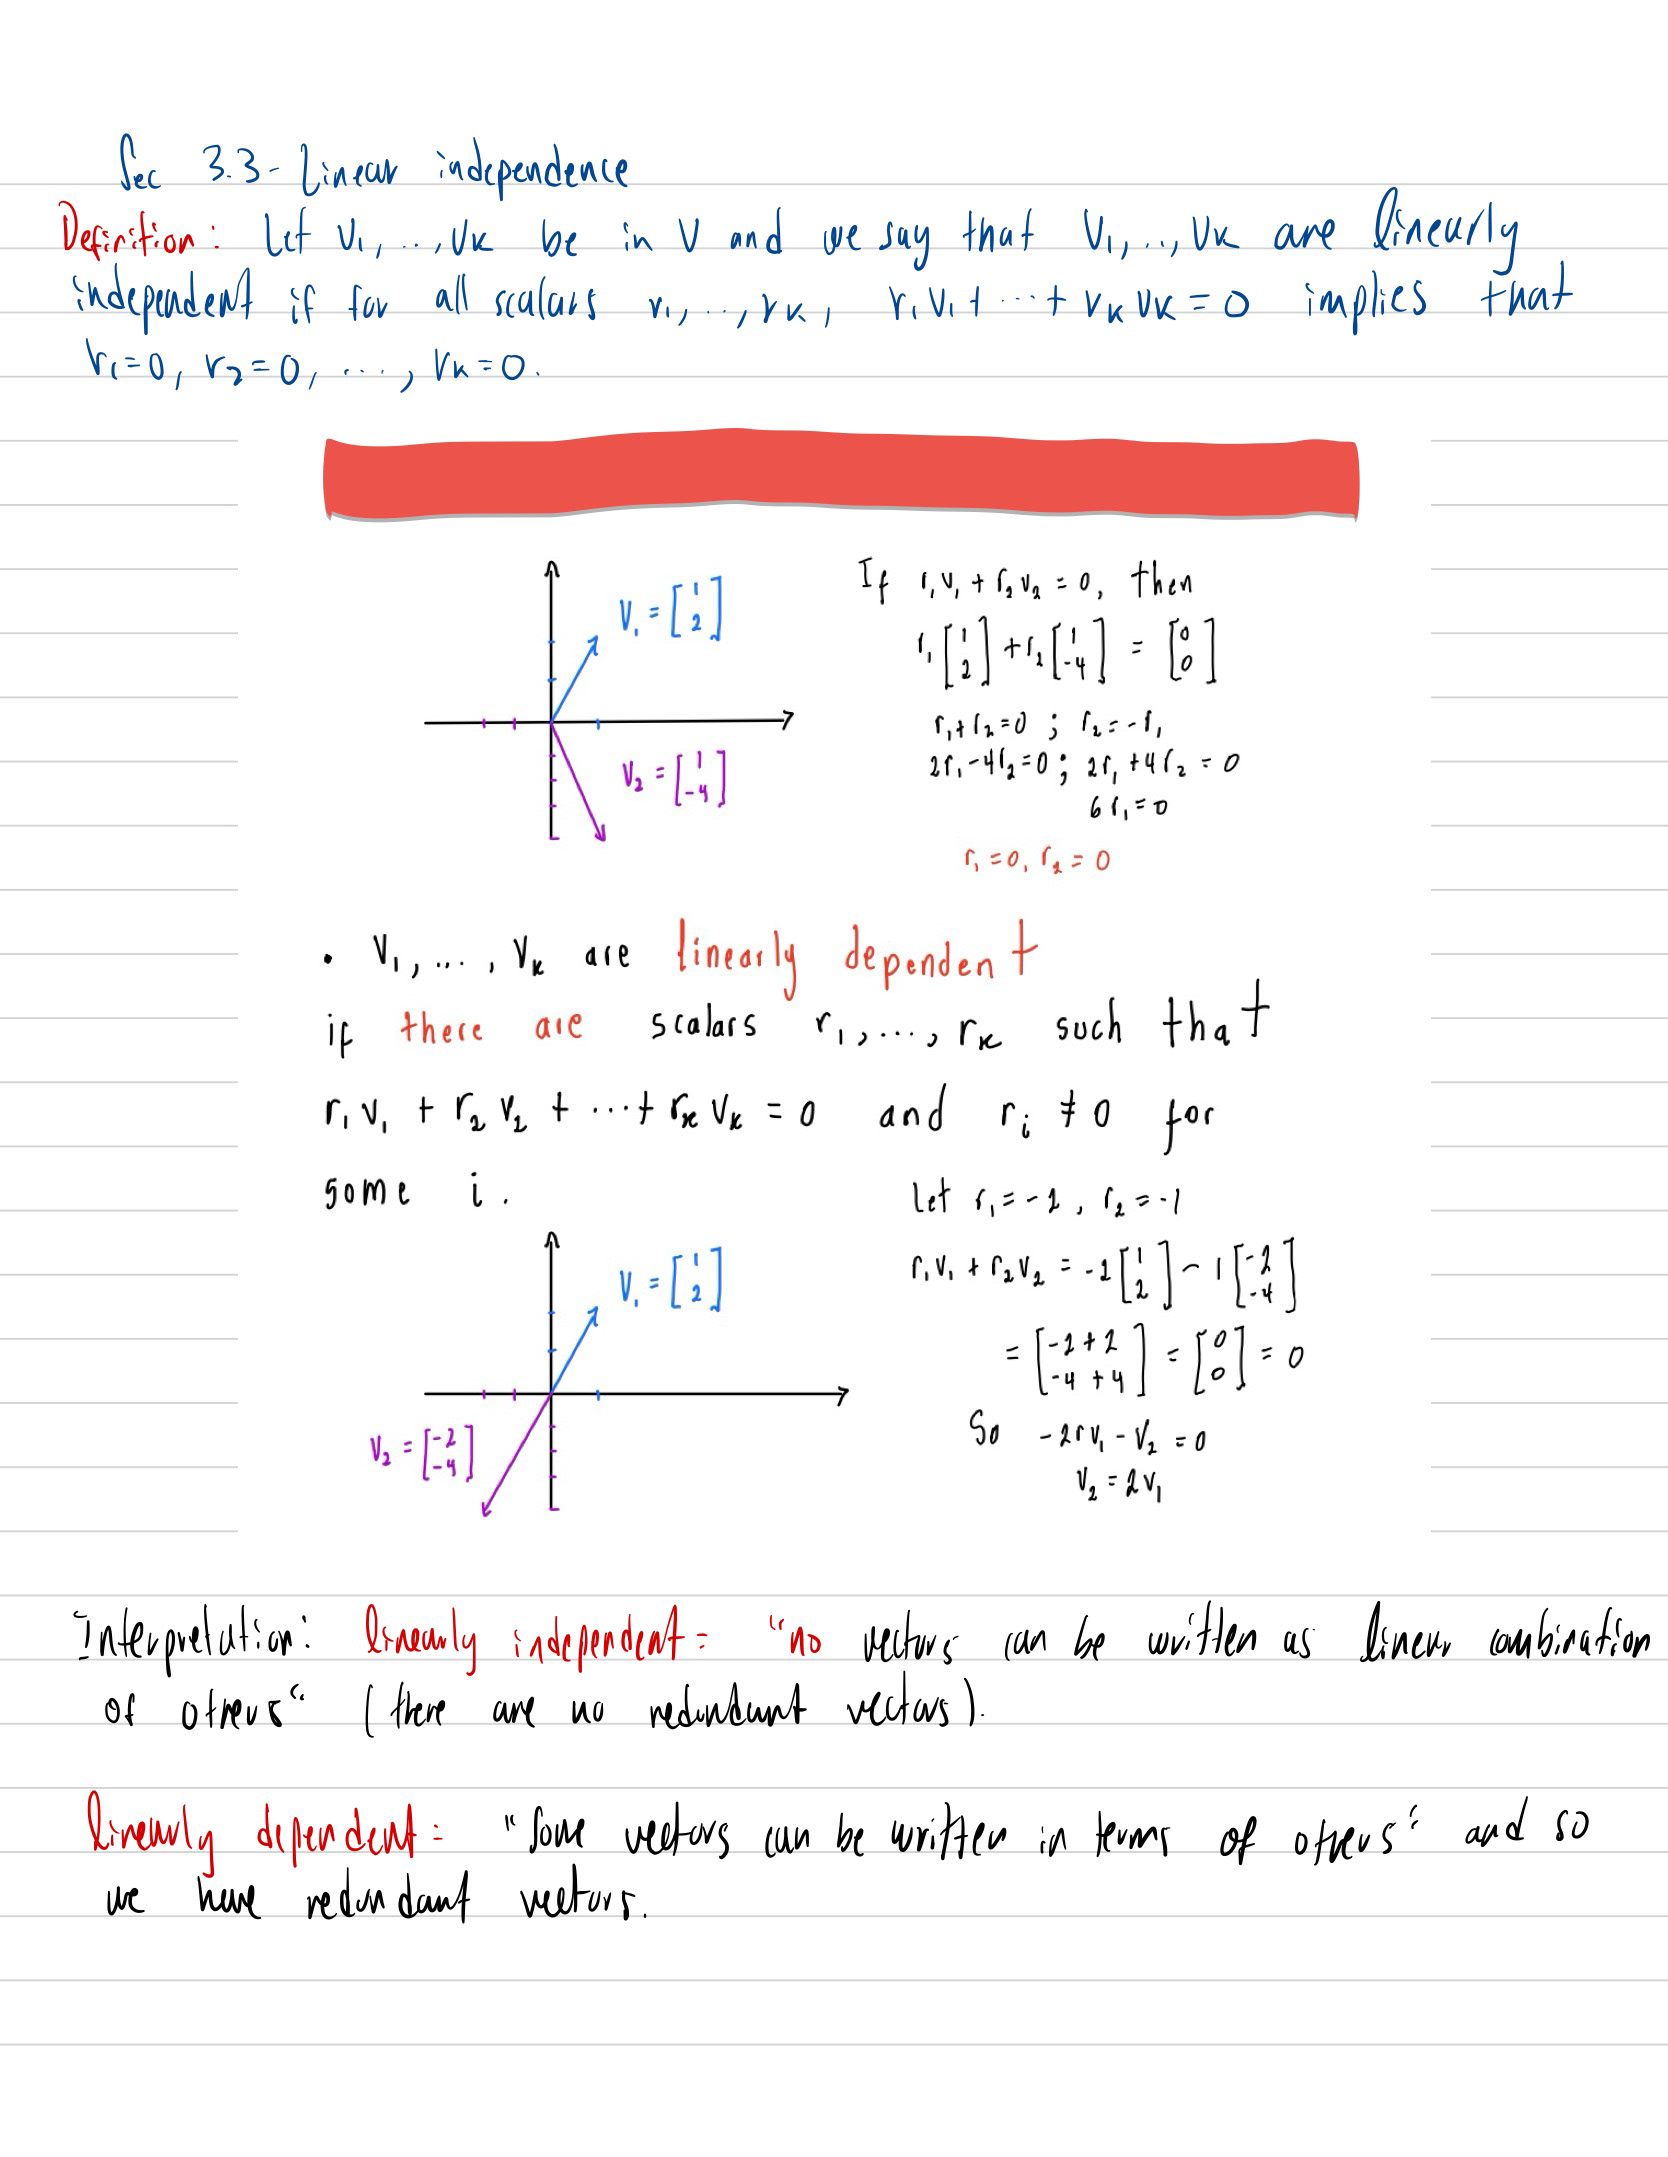 Sec 3.3 - Linear independence
Definition: Let v₁, .., vₖ be in V and we say that v₁, .., vₖ are linearly
independent if for all scalars r₁, .., rₖ, r₁v₁ + ... + rₖvₖ = 0 implies that
r₁=0, r₂=0, ..., rₖ=0.
v₁ = [1 2]
v₂ = [1 -4]
If r₁v₁ + r₂v₂ = 0, then
r₁[1 2] + r₂[1 -4] = [0 0]
r₁+r₂=0 ; r₂=-r₁
2r₁-4r₂=0 ; 2r₁+4r₂=0
6r₁=0
r₁=0, r₂=0
• v₁, ..., vₖ are linearly dependent
if there are scalars r₁, ..., rₖ such that
r₁v₁ + r₂v₂ + ... + rₖvₖ = 0 and rᵢ ≠ 0 for
some i.
v₁ = [1 2]
v₂ = [-2 -4]
Let r₁=-2, r₂=-1
r₁v₁ + r₂v₂ = -2[1 2] - 1[-2 -4]
= [-2+2 -4+4] = [0 0] = 0
So -2rv₁ - v₂ = 0
v₂ = 2v₁
Interpretation: linearly independent = "no vectors can be written as linear combination
of others" (there are no redundant vectors).
linearly dependent = "Some vectors can be written in terms of others" and so
we have redundant vectors.